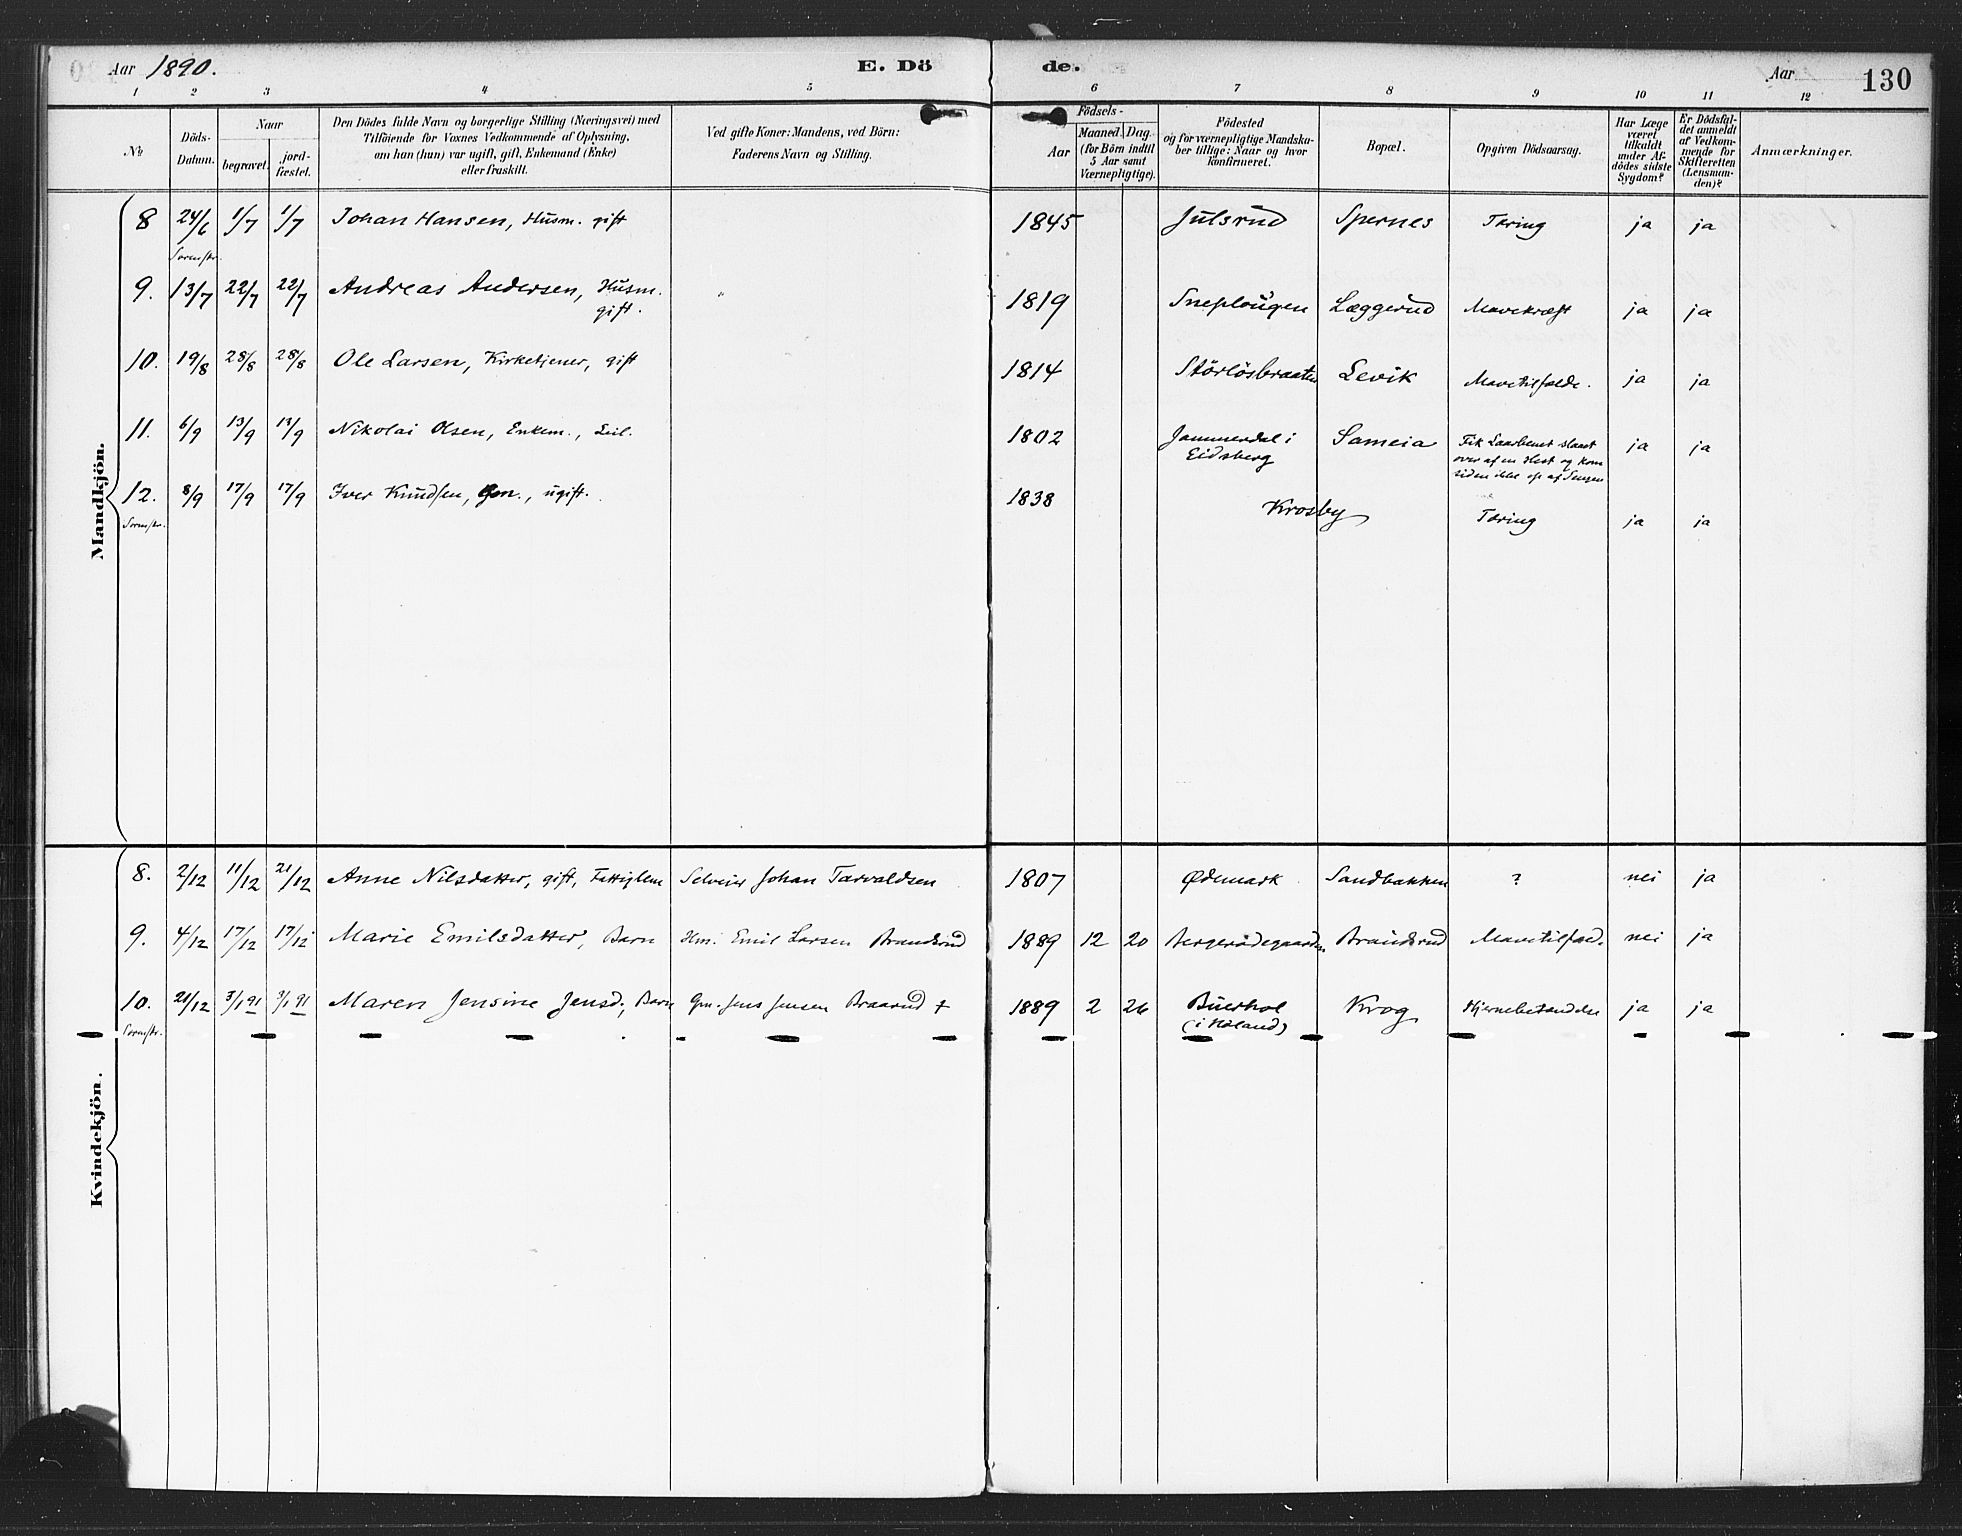 Aar 1890. E. Dö de. Aar 130
1 2 3 4 5 6 7 8 9 10 11 12
No
Döds-
Datum.
Naar
begravet.
jord-
fæstet.
Den Dödes fulde Navn og borgerlige Stilling (Næringsvei) med
Tilföiende for Voxnes Vedkommende af Oplysning,
om han (hun) var ugift, gift, Enkemand (Enke)
eller fraskilt.
Ved gifte Koner: Mandens, ved Börn:
Faderens Navn og Stilling.
Födsels-
Aar
Maaned. Dag.
(for Börn indtil
5 Aar samt
Værnepligtige).
Födested
og for værnepligtige Mandska-
ber tillige: Naar og hvor
konfirmeret.
Bopæl.
Opgiven Dödsaarsag.
Har Læge
været
tilkaldt
under Af-
dödes sidste
Sygdom?
Er Dödsfal-
det anmeldt
af Vedkom-
mende for
Skifteretten
(Lensman-
den)?
Anmærkninger.
Mandkjön.
8 24/6 1/7 1/7 Johan Hansen, Husm. gift 1845 Julsrud Spernes Tæring ja ja
9. 13/7 22/7 22/7 Andreas Andersen, Husm. " 1819 Sneplougen Læggerud Mavekræft ja ja
gift.
10. 19/8 28/8 28/8 Ole Larsen, Kirketjener, gift 1814 Störlösbraaten Levik Mavetilfælde. ja ja
11. 6/9 13/9 13/9 Nikolai Olsen, Enkem., 1802 Jammerdal i Sameia Fik Laarbenet slaaet ja ja
Eidsberg over af en Hest og kom
siden ikke op af Sengen
12. 8/9 17/9 17/9 Iver Knudsen, Gm., ugift. 1838 Krosby Tæring ja ja
Kvindekjön.
8. 2/12 11/12 21/12 Anne Nilsdatter, gift, Fattiglem Selveier Johan Tarvaldsen 1807 Ødemark Sandbakken ? nei ja
9. 4/12 17/12 17/12 Marie Emilsdatter, Barn Hm. Emil Larsen Brandsrud 1889 12 20 Bergerødegaarden Brandsrud Mavetilfæld. nei ja
10. 21/12 3/1 91 3/1 91 Maren Jensine Jensd., Barn Gm. Jens Jensen Braarud + 1889 2 26 Buerhol Krog Hjernebetændelse ja ja
(i Höland)